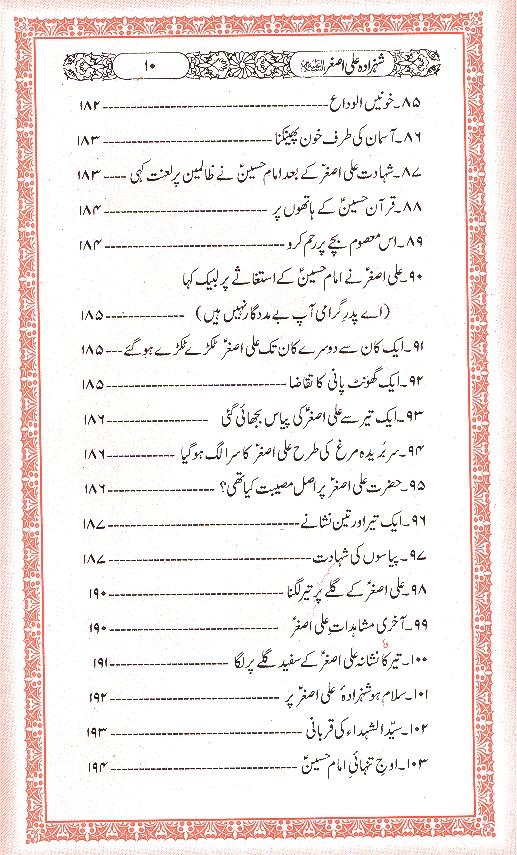 شہزادہ علی اصغرؑ ۱۰
۸۵۔خونیں الوداع ------------------------ ۱۸۲
۸۶۔آسمان کی طرف خون پھینکنا ------------------------ ۱۸۳
۸۷۔شہادت علی اصغرؑ کے بعد امام حسینؑ نے ظالمین پر لعنت کہی ---- ۱۸۳
۸۸۔قرآن حسینؑ کے ہاتھوں پر ------------------------ ۱۸۴
۸۹۔اس معصوم بچے پر رحم کرو ------------------------ ۱۸۴
۹۰۔علی اصغرؑ نے امام حسینؑ کے استغاثے پر لبیک کہا
(اے پدر گرامی آپ بے مددگار نہیں ہیں) ------------ ۱۸۵
۹۱۔ایک کان سے دوسرے کان تک علی اصغرؑ ٹکڑے ٹکڑے ہو گئے --- ۱۸۵
۹۲۔ایک گھونٹ پانی کا تقاضا ------------------------ ۱۸۵
۹۳۔ایک تیر سے علی اصغرؑ کی پیاس بجھائی گئی ------------ ۱۸۶
۹۴۔سر بُریدہ مرغ کی طرح علی اصغرؑ کا سر الگ ہو گیا ------------ ۱۸۶
۹۵۔حضرت علی اصغرؑ پر اصل مصیبت کیا تھی؟ ------------ ۱۸۶
۹۶۔ایک تیر اور تین نشانے ------------------------ ۱۸۷
۹۷۔پیاسوں کی شہادت ------------------------ ۱۸۷
۹۸۔علی اصغرؑ کے گلے پر تیر لگنا ------------------------ ۱۹۰
۹۹۔آخری مشاہدات علی اصغرؑ ------------------------ ۱۹۰
۱۰۰۔تیر کا نشانہ علی اصغرؑ کے سفید گلے پر لگا ------------ ۱۹۱
۱۰۱۔سلام ہو شہزادۂ علی اصغرؑ پر ------------------------ ۱۹۲
۱۰۲۔سیّد الشہداء کی قربانی ------------------------ ۱۹۳
۱۰۳۔اوج تنہائیِ امام حسینؑ ------------------------ ۱۹۴